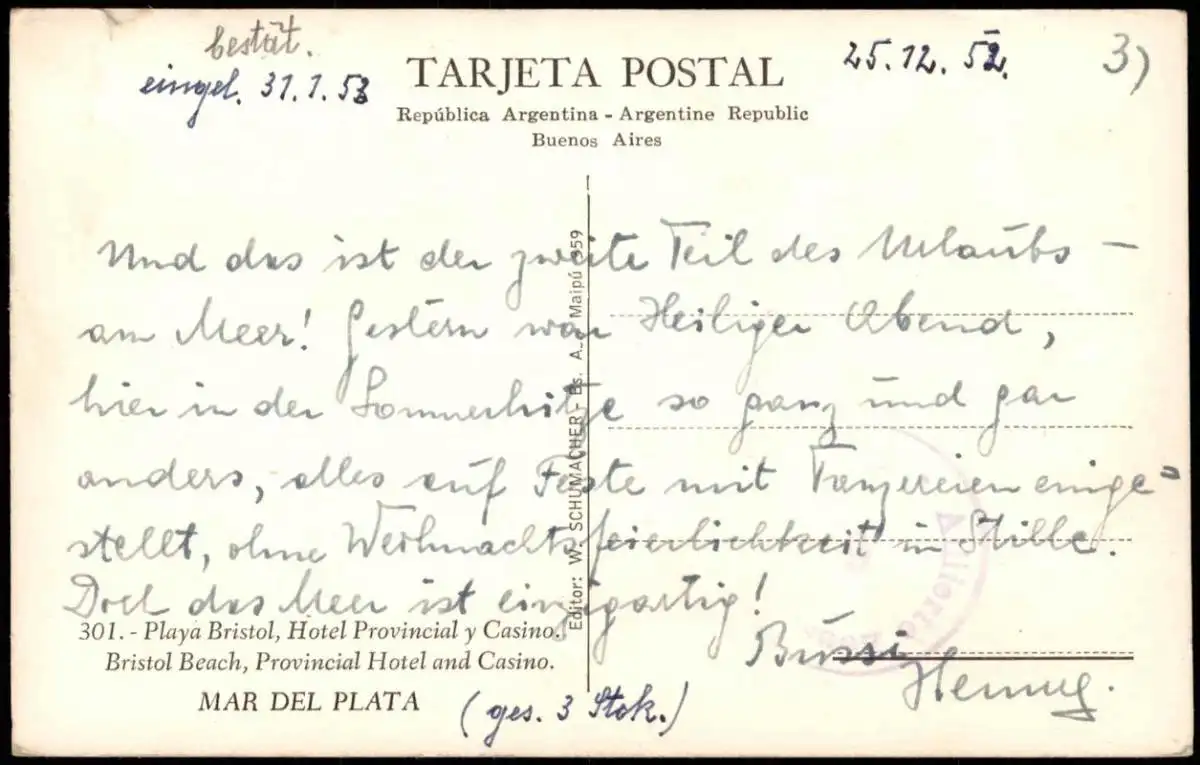 bestät.
eingel. 31.1.53
25.12.52.
3)
TARJETA POSTAL
República Argentina - Argentine Republic
Buenos Aires
Und das ist der zweite Teil des Urlaubs –
am Meer! Gestern war Heiliger Abend,
hier in der Sommerhitze so ganz und gar
anders, alles auf Feste mit Tanzereien einge=
stellt, ohne Weihnachtsfeierlichkeit in Stille.
Doch das Meer ist einzigartig!
Bussi
Henny.
Editor: W. SCHUMACHER - Bs. A. Maipú 959
301. - Playa Bristol, Hotel Provincial y Casino.
Bristol Beach, Provincial Hotel and Casino.
MAR DEL PLATA
(ges. 3 Stck.)